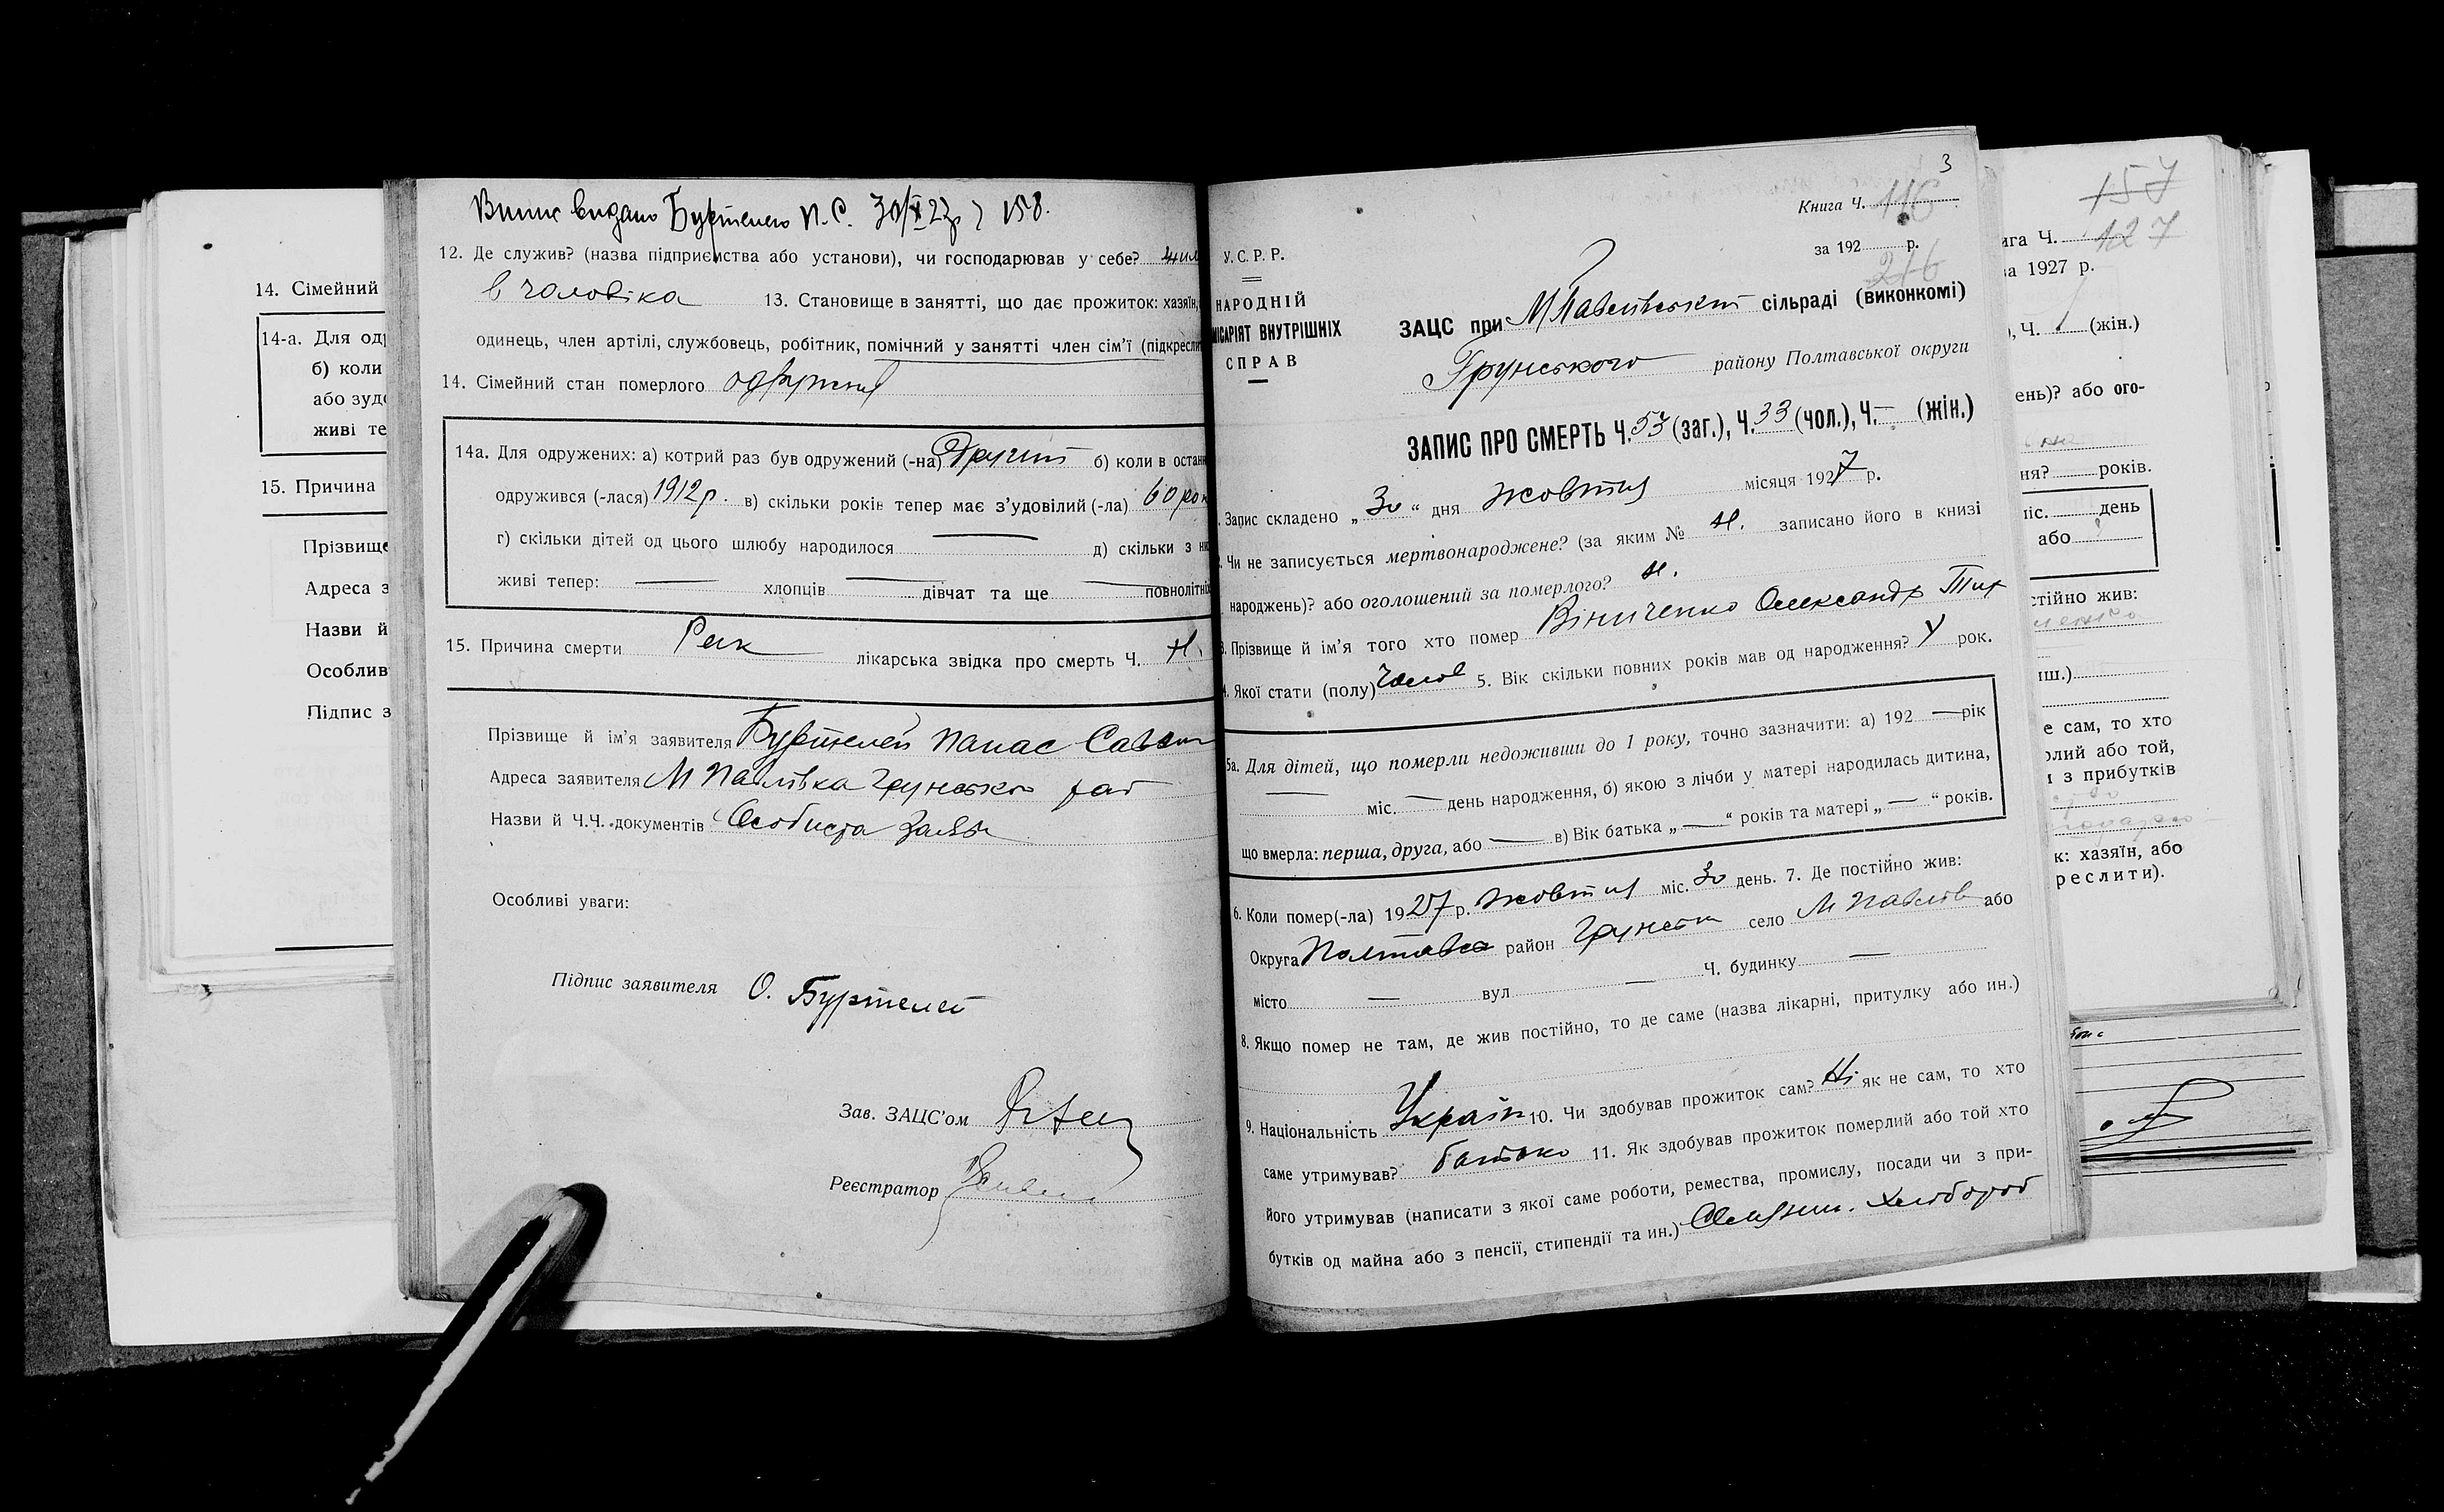 14. Сімейний
14-а. Для од
б) коли
або зудо
живі те
15. Причина
Прізвище
Адреса з
Назви й
Особлив
Підпис з
Випис видано Буртелею П. С. 30/X 27р 158.
12. Де служив? (назва підприємства або установи), чи господарював у себе? жила
в чоловіка 13. Становище в занятті, що дає прожиток: хазяїн,
одинець, член артілі, службовець, робітник, помічний у занятті член сім'ї (підкресли
14. Сімейний стан померлого
14а. Для одружених: а) котрий раз був одружений (-на) Другий б) коли в остан
одружився (-лася) 1912 р. в) скільки років тепер має з'удовілий (-ла) 60 рок
г) скільки дітей од цього шлюбу народилося — д) скільки з ни
живі тепер: — хлопців — дівчат та ще — повнолітніх
15. Причина смерти Рак лікарська звідка про смерть Ч. Н.
Прізвище й ім'я заявителя Буртелей Панас Савов
Адреса заявителя М Павлівка Грунського рай
Назви й Ч.Ч. документів Особиста заява
Особливі уваги:
Підпис заявителя О. Буртелей
Зав. ЗАЦС'ом
Реєстратор
3
Книга Ч. 116
за 192 р.
216
У. С. Р. Р.
НАРОДНІЙ
МІСАРІЯТ ВНУТРІШНІХ
СПРАВ
ЗАЦС при М Павлівській сільраді (виконкомі)
Грунського району Полтавської округи
ЗАПИС ПРО СМЕРТЬ Ч. 53 (заг.), Ч. 33 (чол.), Ч. — (жін.)
Запис складено „30“ дня жовтня місяця 1927 р.
Чи не записується мертвонароджене? (за яким № Н. записано його в книзі
народжень)? або оголошений за померлого? Н.
3. Прізвище й ім'я того хто помер Вініченко Олександр Тих
4. Якої стати (полу) Чолов 5. Вік скільки повних років мав од народження? У рок.
5а. Для дітей, що померли недоживши до 1 року, точно зазначити: а) 192 — рік
— міс. — день народження, б) якою з лічби у матері народилась дитина,
що вмерла: перша, друга, або — в) Вік батька „—“ років та матері „—“ років.
6. Коли помер(-ла) 1927 р. жовтня міс. 30 день. 7. Де постійно жив:
Округа Полтавс район Грунськ село М Павлів або
місто — вул — Ч. будинку —
8. Якщо помер не там, де жив постійно, то де саме (назва лікарні, притулку або ин.)
9. Національність Україн 10. Чи здобував прожиток сам? Ні як не сам, то хто
саме утримував? батько 11. Як здобував прожиток померлий або той хто
його утримував (написати з якої саме роботи, ремества, промислу, посади чи з при-
бутків од майна або з пенсії, стипендії та ин.) Селянин. Хлібороб
157
127
ига Ч.
за 1927 р.
, Ч. (жін.)
ень)? або ого-
ня? років.
міс. день
або
стійно жив:
иш.)
е сам, то хто
рлий або той,
и з прибутків
к: хазяїн, або
реслити).